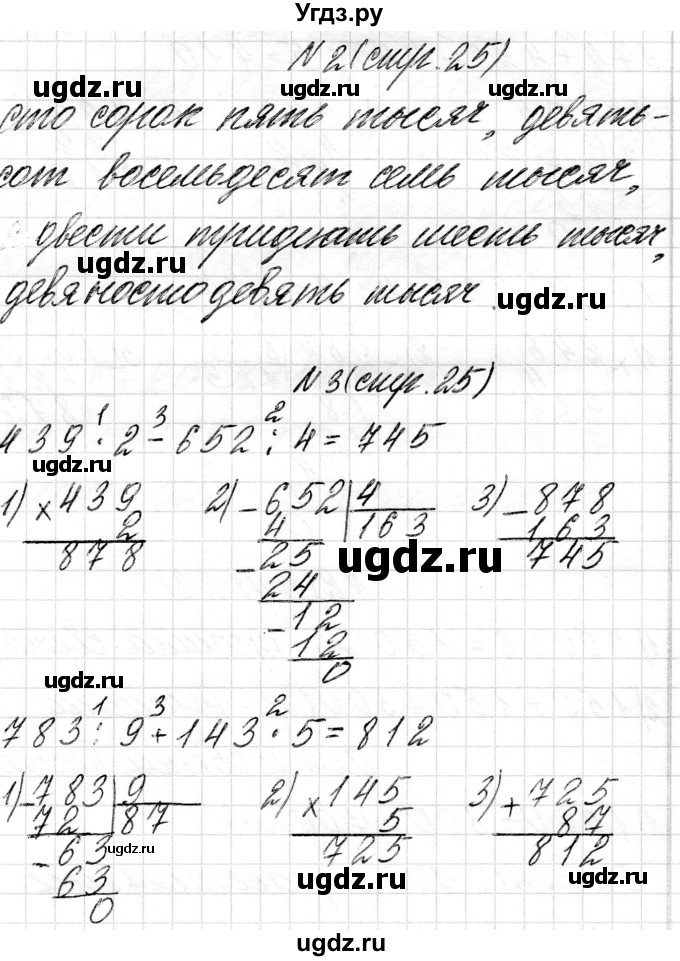 Угдз.ру
N 2 (стр. 25)
ugdz.ru ugdz.ru
сто сорок пять тысяч, девять-
сот восемьдесят семь тысяч,
двести тридцать шесть тысяч,
ugdz.ru
девяносто девять тысяч
ugdz.ru
N 3 (стр. 25)
1 3 2
439 · 2 - 652 : 4 = 745
ugdz.ru ugdz.ru
1) × 439 2) - 652 | 4 3) - 878
2 4 163 163
878 - 25 745
24
ugdz.ru
- 12
12
0
ugdz.ru
1 3 2
783 : 9 + 143 · 5 = 812
1) - 783 | 9 2) × 145 3) + 725
72 87 5 87
- 63 725 812
ugdz.ru
63
ugdz.ru ugdz.ru
0
ugdz.ru